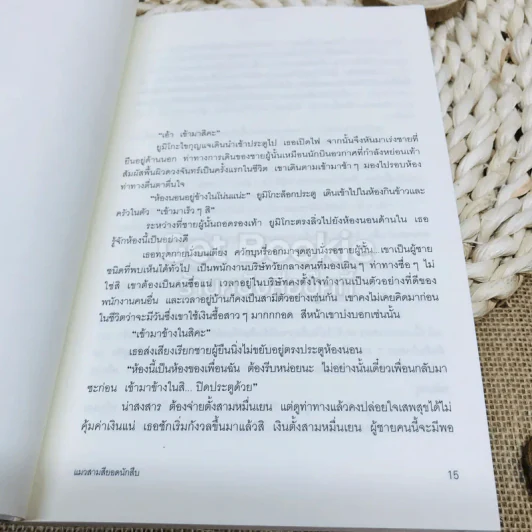 "เอ้า เข้ามาสิคะ"
ยูมิโกะไขกุญแจเดินนำเข้าประตูไป เธอเปิดไฟ จากนั้นจึงหันมาเร่งชายที่
ยืนอยู่ด้านนอก ท่าทางการเดินของชายผู้นั้นเหมือนนักบินอวกาศที่กำลังหย่อนเท้า
สัมผัสพื้นผิวดวงจันทร์เป็นครั้งแรกในชีวิต เขาเดินตามเข้ามาช้า ๆ มองไปรอบห้อง
ท่าทางตื่นตาตื่นใจ
"ห้องนอนอยู่ข้างในโน่นแน่ะ" ยูมิโกะล็อกประตู เดินเข้าไปในห้องกินข้าวและ
ครัวในตัว "เข้ามาเร็ว ๆ สิ"
ระหว่างที่ชายผู้นั้นถอดรองเท้า ยูมิโกะตรงลิ่วไปยังห้องนอนด้านใน เธอ
รู้จักห้องนี้เป็นอย่างดี
เธอทรุดกายนั่งบนเตียง ควักบุหรี่ออกมาจุดสูบนั่งรอชายผู้นั้น เขาเป็นผู้ชาย
ชนิดที่พบเห็นได้ทั่วไป เป็นพนักงานบริษัทวัยกลางคนที่มองเผิน ๆ ท่าทางซื่อ ๆ ไม่
ใช่สิ เขาต้องเป็นคนซื่อแน่ เวลาอยู่ในบริษัทคงตั้งใจทำงานเป็นตัวอย่างที่ดีของ
พนักงานคนอื่น และเวลาอยู่บ้านก็คงเป็นสามีตัวอย่างเช่นกัน เขาคงไม่เคยคิดมาก่อน
ในชีวิตว่าจะมีวันซึ่งเขาใช้เงินซื้อสาว ๆ มากกกอด สีหน้าเขาบ่งบอกเช่นนั้น
"เข้ามาข้างในสิคะ"
เธอส่งเสียงเรียกชายผู้ยืนนิ่งไม่ขยับอยู่ตรงประตูห้องนอน
"ห้องนี้เป็นห้องของเพื่อนฉัน ต้องรีบหน่อยนะ ไม่อย่างนั้นเดี๋ยวเพื่อนกลับมา
ซะก่อน เข้ามาข้างในสิ... ปิดประตูด้วย"
น่าสงสาร ต้องจ่ายตั้งสามหมื่นเยน แต่ดูท่าทางแล้วคงปล่อยใจเสพสุขได้ไม่
คุ้มค่าเงินแน่ เธอชักเริ่มกังวลขึ้นมาแล้วสิ เงินตั้งสามหมื่นเยน ผู้ชายคนนี้จะมีพอ
แมวสามสียอดนักสืบ
15